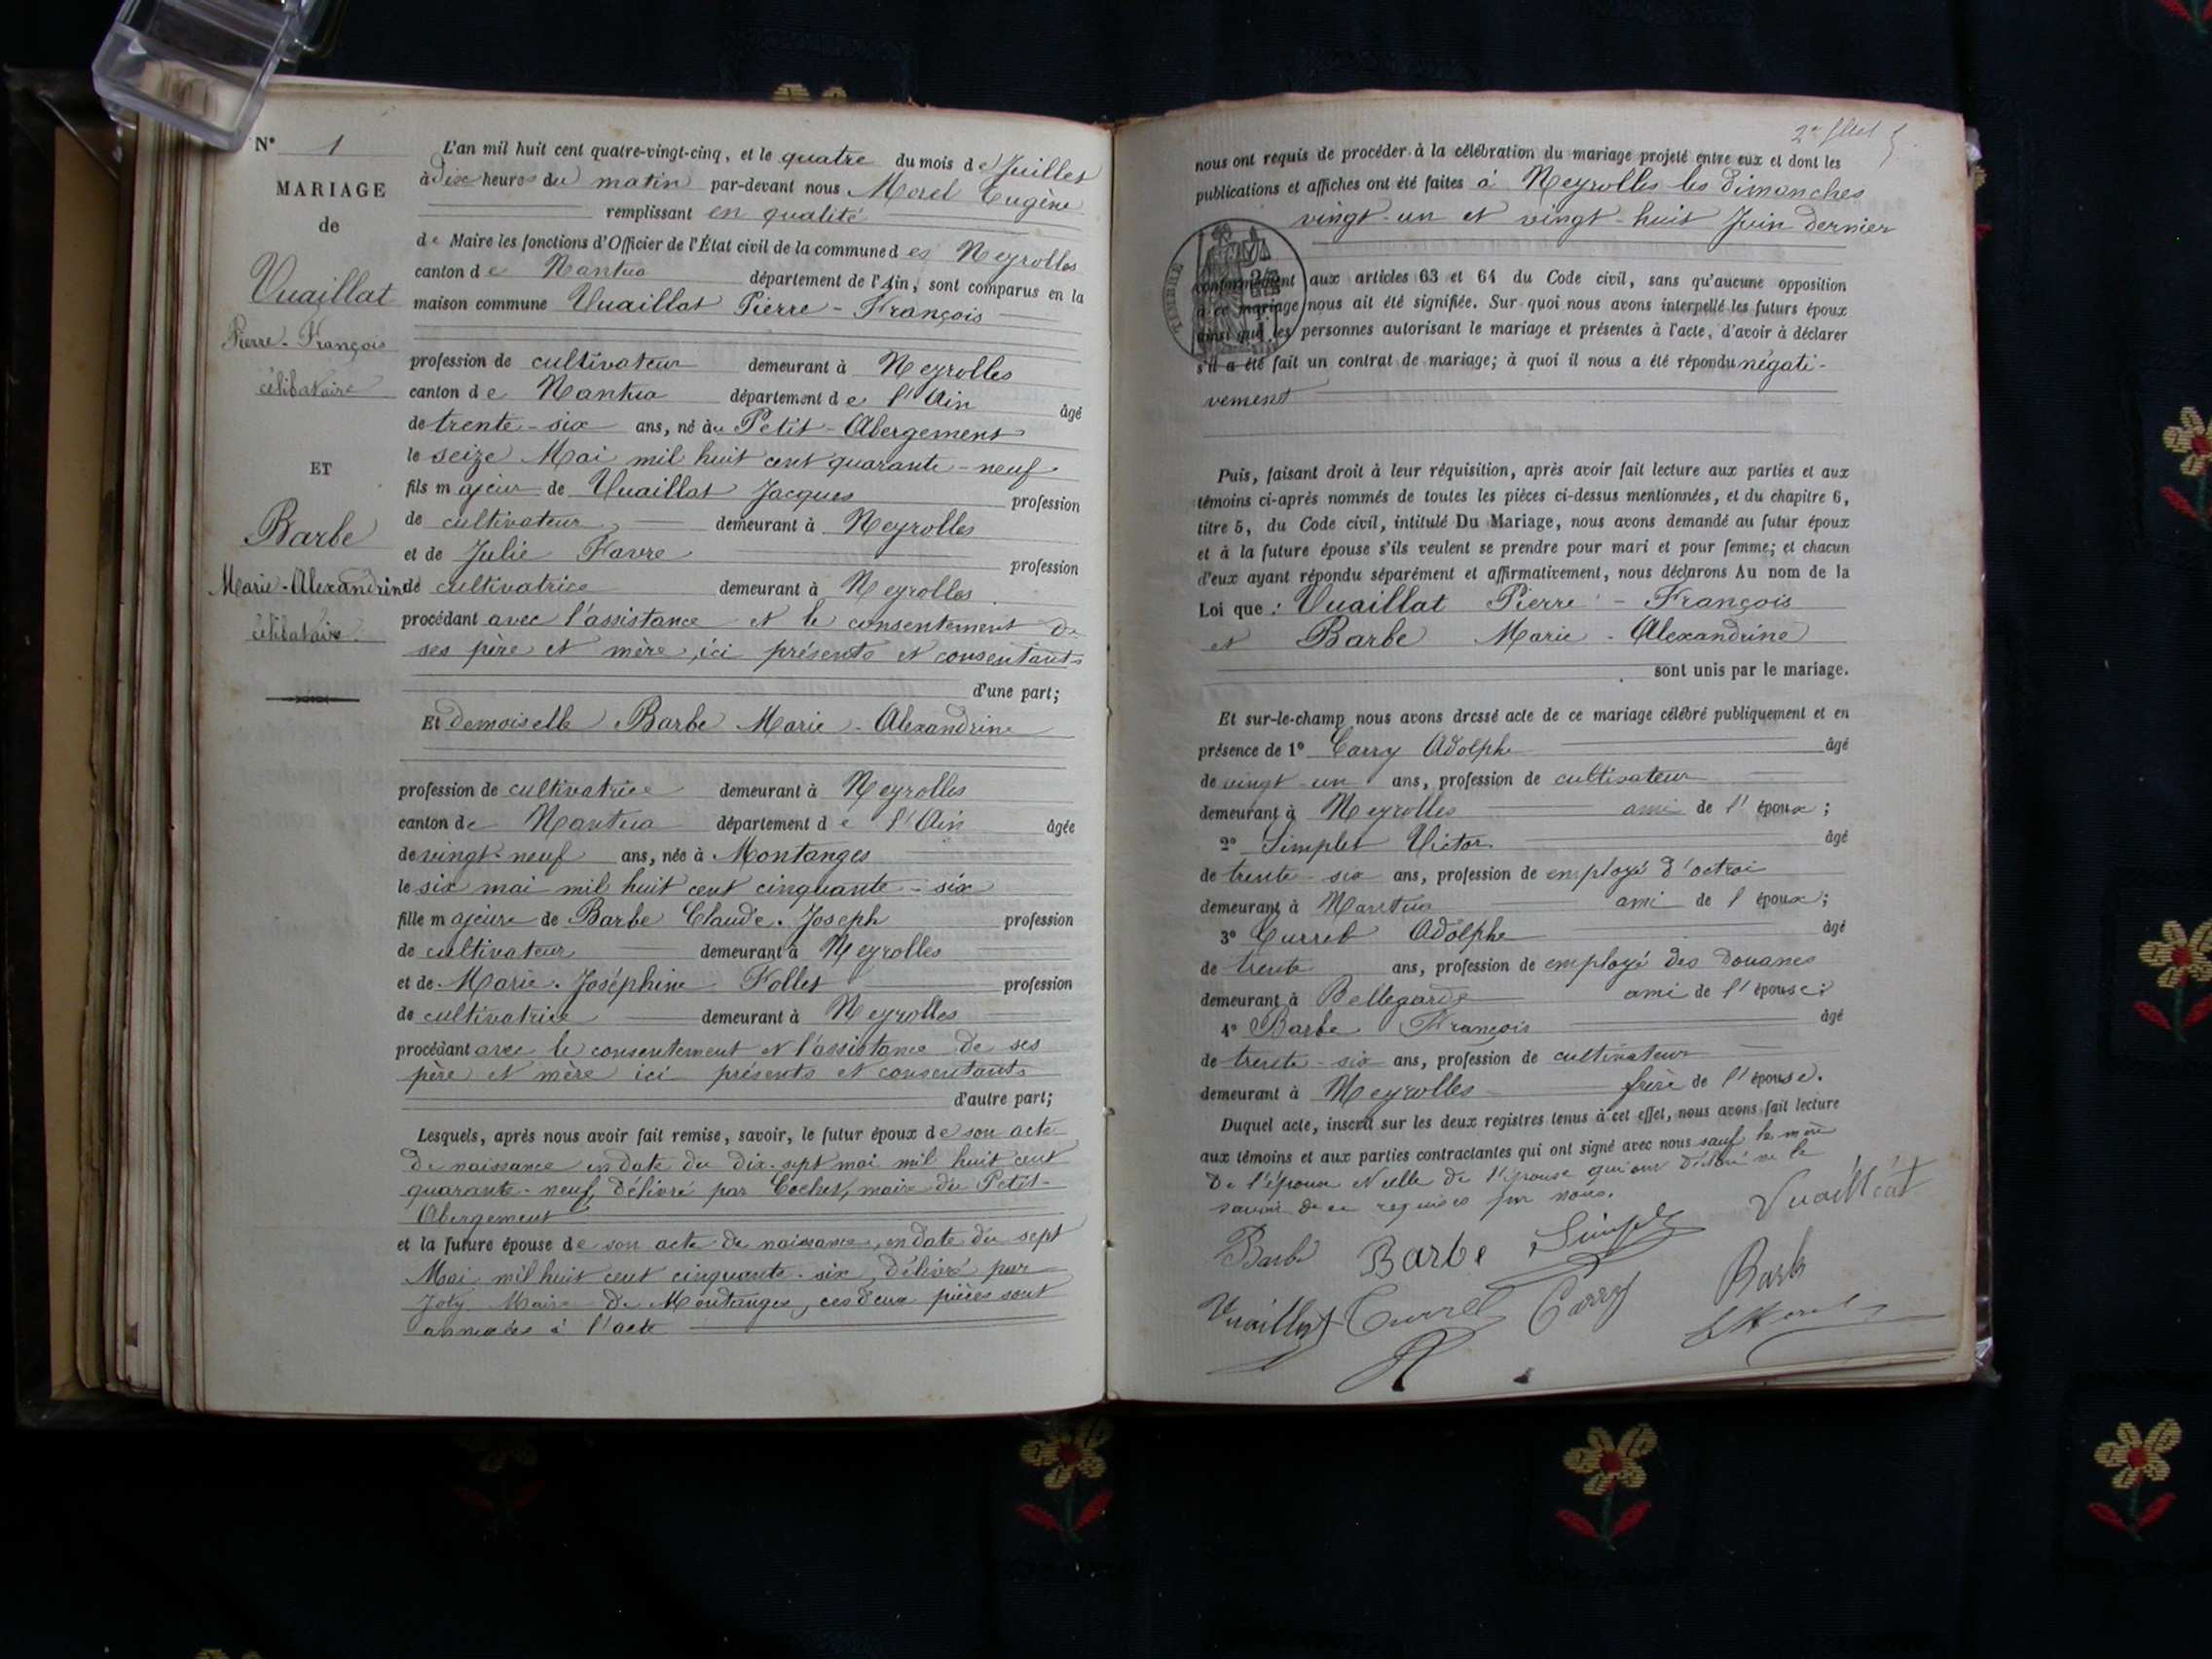 N° 1
MARIAGE
de
Vuaillat
Pierre-François
célibataire
ET
Barbe
Marie-Alexandrine
célibataire
L'an mil huit cent quatre-vingt-cinq, et le quatre du mois de Juillet
à dix heures du matin par-devant nous Morel Eugène
remplissant en qualité
de Maire les fonctions d'Officier de l'État civil de la commune des Neyrolles
canton de Nantua département de l'Ain, sont comparus en la
maison commune Vuaillat Pierre-François
profession de cultivateur demeurant à Neyrolles
canton de Nantua département de l'Ain âgé
de trente-six ans, né au Petit-Abergement
le seize Mai mil huit cent quarante-neuf
fils majeur de Vuaillat Jacques profession
de cultivateur demeurant à Neyrolles
et de Julie Favre profession
de cultivatrice demeurant à Neyrolles
procédant avec l'assistance et le consentement de
ses père et mère, ici présents et consentants
d'une part;
Et demoiselle Barbe Marie-Alexandrine
profession de cultivatrice demeurant à Neyrolles
canton de Nantua département de l'Ain âgée
de vingt-neuf ans, née à Montanges
le six mai mil huit cent cinquante-six
fille majeure de Barbe Claude-Joseph profession
de cultivateur demeurant à Neyrolles
et de Marie-Joséphine Follet profession
de cultivatrice demeurant à Neyrolles
procédant avec le consentement et l'assistance de ses
père et mère ici présents et consentants
d'autre part;
Lesquels, après nous avoir fait remise, savoir, le futur époux de son acte
de naissance en date du dix-sept mai mil huit cent
quarante-neuf, délivré par Cochet, maire du Petit-
Abergement
et la future épouse de son acte de naissance, en date du sept
Mai mil huit cent cinquante-six, délivré par
Joly Maire de Montanges, ces deux pièces sont
annexées à l'acte
nous ont requis de procéder à la célébration du mariage projeté entre eux et dont les
publications et affiches ont été faites à Neyrolles les dimanches
vingt-un et vingt-huit Juin dernier
conformément aux articles 63 et 64 du Code civil, sans qu'aucune opposition
à ce mariage nous ait été signifiée. Sur quoi nous avons interpellé les futurs époux
ainsi que les personnes autorisant le mariage et présentes à l'acte, d'avoir à déclarer
s'il a été fait un contrat de mariage; à quoi il nous a été répondu négati-
vement
Puis, faisant droit à leur réquisition, après avoir fait lecture aux parties et aux
témoins ci-après nommés de toutes les pièces ci-dessus mentionnées, et du chapitre 6,
titre 5, du Code civil, intitulé Du Mariage, nous avons demandé au futur époux
et à la future épouse s'ils veulent se prendre pour mari et pour femme; et chacun
d'eux ayant répondu séparément et affirmativement, nous déclarons Au nom de la
Loi que : Vuaillat Pierre-François
et Barbe Marie-Alexandrine
sont unis par le mariage.
Et sur-le-champ nous avons dressé acte de ce mariage célébré publiquement et en
présence de 1° Carry Adolphe âgé
de vingt-un ans, profession de cultivateur
demeurant à Neyrolles ami de l'époux;
2° Simplet Victor âgé
de trente-six ans, profession de employé d'octroi
demeurant à Nantua ami de l'époux;
3° Curret Adolphe âgé
de trente ans, profession de employé des douanes
demeurant à Bellegarde ami de l'épouse;
4° Barbe François âgé
de trente-six ans, profession de cultivateur
demeurant à Neyrolles frère de l'épouse.
Duquel acte, inscrit sur les deux registres tenus à cet effet, nous avons fait lecture
aux témoins et aux parties contractantes qui ont signé avec nous sauf la mère
de l'époux et celle de l'épouse qui ont déclaré ne le
savoir de ce requises par nous.
Vuaillat
Barbe Barbe Simplet
Barbe
Vuaillat Curret Carry
E Morel